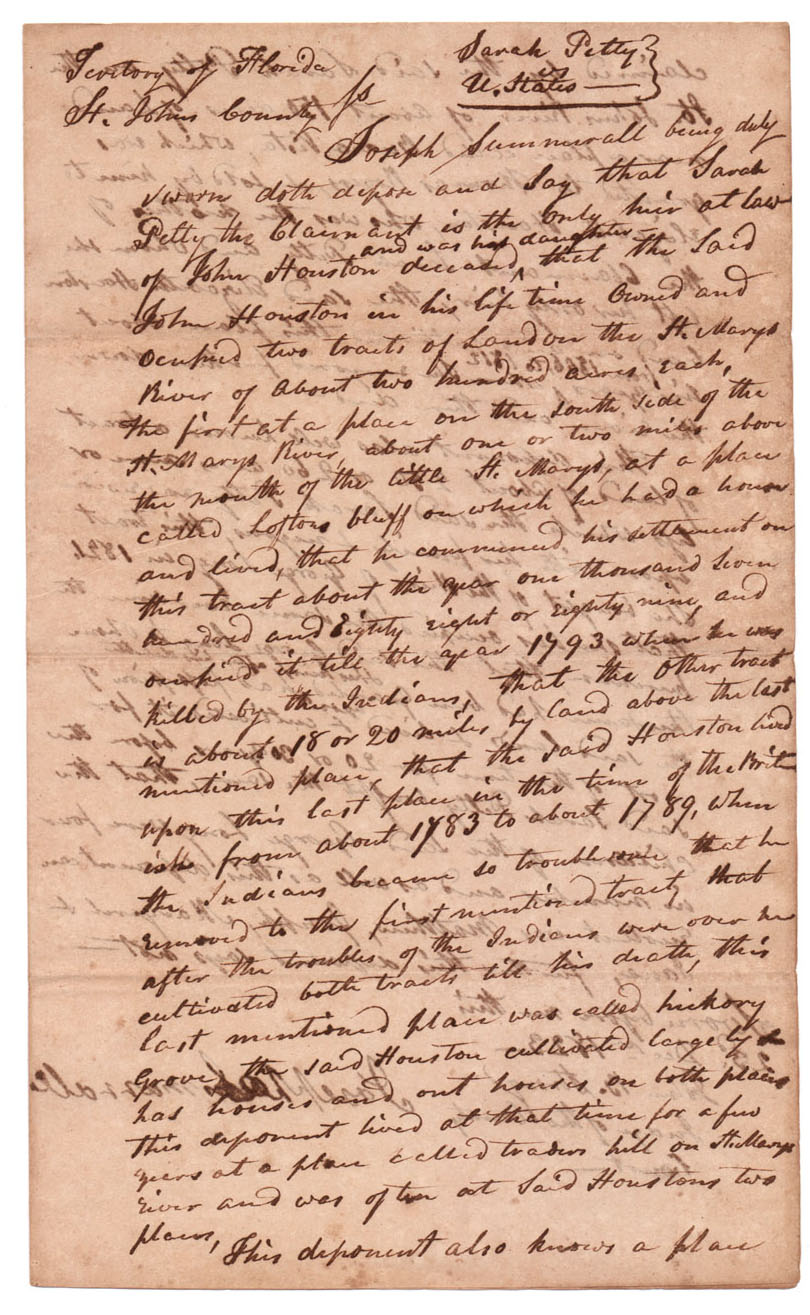 Teritory of Florida
St. Johns County } ss
Sarah Petty
vs
U. States
Joseph Summerall being duly
sworn doth depose and Say that Sarah
Petty the Claimant is the only hir at law
and was his daughter
of John Houston deceased ^ that the Said
John Houston in his life time Owned and
Ocupied two tracts of Land on the St. Marys
River of About two hundred acres each,
the first at a place on the south side of the
St. Marys River, about one or two miles above
the mouth of the little St. Marys, at a place
called Loftons bluff on which he had a house
and lived, that he commenced his settlement on
this tract about the year one thousand Seven
hundred and Eighty Eight or Eighty nine, and
ocupied it till the year 1793 when he was
killed by the Indians, that the Other tract
is about 18 or 20 miles by land above the last
mentioned place, that the said Houston lived
upon this last place in the time of the Brit
ish from about 1783 to about 1789, when
the Indians became so troublesome that he
removed to the first mentioned tract, that
after the troubles of the Indians were over he
cultivated both tracts till his death, this
last mentioned place was called hickory
Grove, the said Houston cultivated largely &
has houses and out houses on both places
this deponent lived at that time for a few
years at a place called traders hill on St. Marys
River and was often at Said Houstons two
places,
This deponent also knows a place